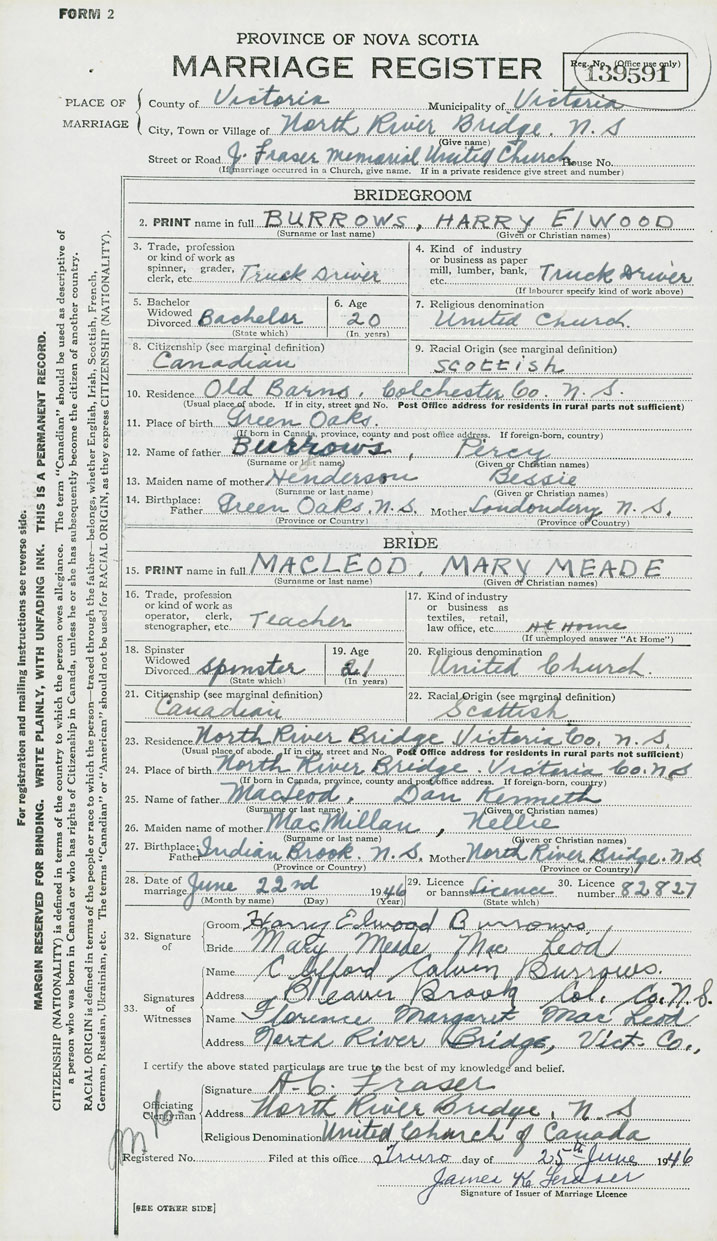 FORM 2
PROVINCE OF NOVA SCOTIA
MARRIAGE REGISTER
Reg. No. (Office use only)
139591
PLACE OF MARRIAGE
County of Victoria Municipality of Victoria
City, Town or Village of North River Bridge. N.S
(Give name)
Street or Road J. Fraser Memorial United Church House No.
(If marriage occurred in a Church, give name. If in a private residence give street and number)
BRIDEGROOM
2. PRINT name in full BURROWS, HARRY ElWOOD
(Surname or last name) (Given or Christian names)
3. Trade, profession or kind of work as spinner, grader, clerk, etc. Truck driver
4. Kind of industry or business as paper mill, lumber, bank, etc. Truck driver
(If labourer specify kind of work above)
5. Bachelor Widowed Divorced Bachelor
(State which)
6. Age 20
(In years)
7. Religious denomination
United Church.
8. Citizenship (see marginal definition)
Canadian
9. Racial Origin (see marginal definition)
Scottish
10. Residence Old Barns, Colchester Co. N.S.
(Usual place of abode. If in city, street and No. Post Office address for residents in rural parts not sufficient)
11. Place of birth Green Oaks.
(If born in Canada, province, county and post office address. If foreign-born, country)
12. Name of father Burrows, Percy
(Surname or last name) (Given or Christian names)
13. Maiden name of mother Henderson Bessie
(Surname or last name) (Given or Christian names)
14. Birthplace: Father Green Oaks. N.S. Mother Londonderry N.S.
(Province or Country) (Province or Country)
BRIDE
15. PRINT name in full MACLEOD, MARY MEADE
(Surname or last name) (Given or Christian names)
16. Trade, profession or kind of work as operator, clerk, stenographer, etc. Teacher
17. Kind of industry or business as textiles, retail, law office, etc. At Home
(If unemployed answer "At Home")
18. Spinster Widowed Divorced Spinster
(State which)
19. Age 21
(In years)
20. Religious denomination
United Church.
21. Citizenship (see marginal definition)
Canadian
22. Racial Origin (see marginal definition)
Scottish
23. Residence North River Bridge Victoria Co. N.S.
(Usual place of abode. If in city, street and No. Post Office address for residents in rural parts not sufficient)
24. Place of birth North River Bridge Victoria Co. N.S
(If born in Canada, province, county and post office address. If foreign-born, country)
25. Name of father Macleod, Dan Kenneth
(Surname or last name) (Given or Christian names)
26. Maiden name of mother MacMillan, Nellie
(Surname or last name) (Given or Christian names)
27. Birthplace: Father Indian Brook. N.S. Mother North River Bridge. N.S
(Province or Country) (Province or Country)
28. Date of marriage June 22nd 1946
(Month by name) (Day) (Year)
29. Licence or banns Licence
(State which)
30. Licence number 82827
32. Signature of
Groom Harry Elwood Burrows
Bride Mary Meade Mac Leod
33. Signatures of Witnesses
Name Clifford Calvin Burrows.
Address Beaver Brook Col. Co. N.S.
Name Florence Margaret Mac Leod
Address North River Bridge, Vict. Co.,
I certify the above stated particulars are true to the best of my knowledge and belief.
Officiating Clergyman
Signature A.C. Fraser
Address North River Bridge. N.S
Religious Denomination United Church of Canada
Registered No. Filed at this office Truro day of 25th June 1946
James K Fraser
Signature of Issuer of Marriage Licence
[SEE OTHER SIDE]
For registration and mailing instructions see reverse side.
MARGIN RESERVED FOR BINDING. WRITE PLAINLY, WITH UNFADING INK. THIS IS A PERMANENT RECORD.
CITIZENSHIP (NATIONALITY) is defined in terms of the country to which the person owes allegiance. The term "Canadian" should be used as descriptive of
a person who was born in Canada or who has rights of Citizenship in Canada, unless he or she has subsequently become the citizen of another country.
RACIAL ORIGIN is defined in terms of the people or race to which the person—traced through the father—belongs, whether English, Irish, Scottish, French,
German, Russian, Ukrainian, etc. The terms "Canadian" or "American" should not be used for RACIAL ORIGIN, as they express CITIZENSHIP (NATIONALITY).